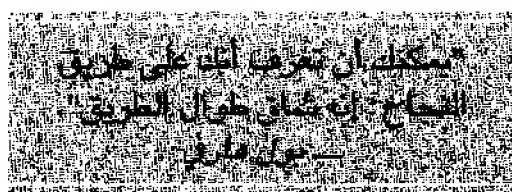 "يمكنك أن تعرف أنك على طريق
النجاح: إنه شاق طوال الطريق".
— بول هارفي